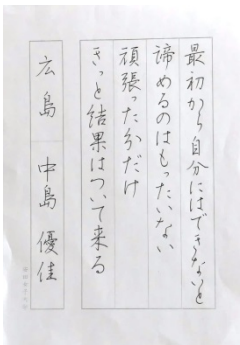 最初から自分にはできないと
諦めるのはもったいない
頑張った分だけ
きっと結果はついて来る
広島 中島 優佳